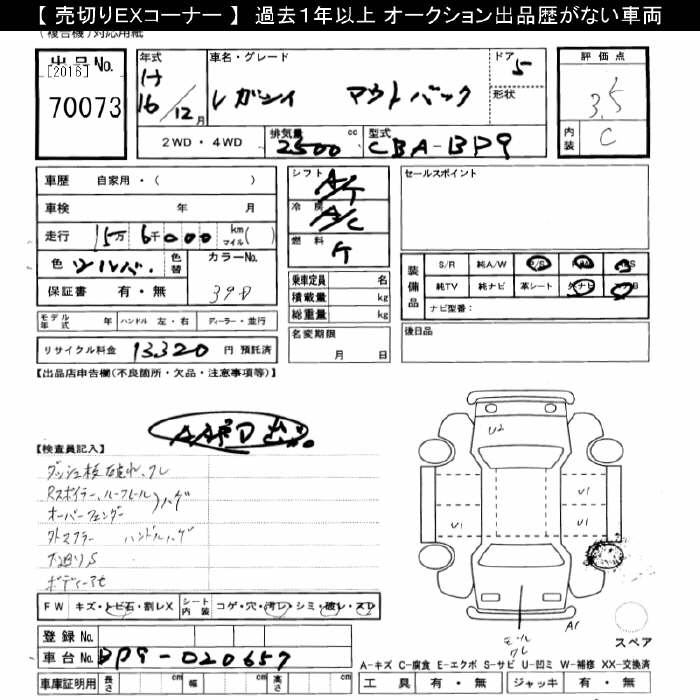 【 売切りEXコーナー 】 過去1年以上 オークション出品歴がない車両
(複合機)対応用紙
出品No.
[2016]
70073
年式 H 16 / 12 月
車名・グレード
レガシィ アウトバック
ドア 5
形状
評価点
3.5
内装 C
2WD・4WD
排気量 2500 cc
型式 CBA-BP9
車歴 自家用・( )
車検 年 月
走行 15万 6千000 km マイル( )
色 シルバー 色替
カラーNo. 39D
保証書 有・無
シフト A/T
冷房 A/C
燃料 ケ
乗車定員 名
積載量 kg
総重量 kg
名変期限
月 日
セールスポイント
装備品
S/R 純A/W P/S P/W
純TV 純ナビ 革シート 外ナビ
ナビ型番:
後日品
モデル年式 年 ハンドル 左・右 ディーラー・並行
リサイクル料金 13320 円 預託済
【出品店申告欄(不良個所・欠品・注意事項等)】
【検査員記入】
Rスポイラー、ルーフレール
オーバーフェンダー
ハゲ
外マフラー ハンドルハゲ
U2
U1
U1
A1
モール
クレ
スペア
FW キズ・トビ石・割レX
シート内装 コゲ・穴・汚レ・シミ・破レ・スレ
登録No.
車台No. BP9-020657
車庫証明用 長さ cm 幅 cm 高さ cm
A-キズ C-腐食 E-エクボ S-サビ U-凹ミ W-補修 XX-交換済
工具 有・無 ジャッキ 有・無